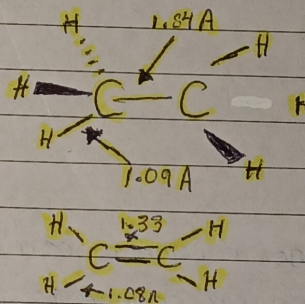 H 1.54 A H
H C — C H
H H
1.09 A
H 1.33 H
C = C
H H
1.08A